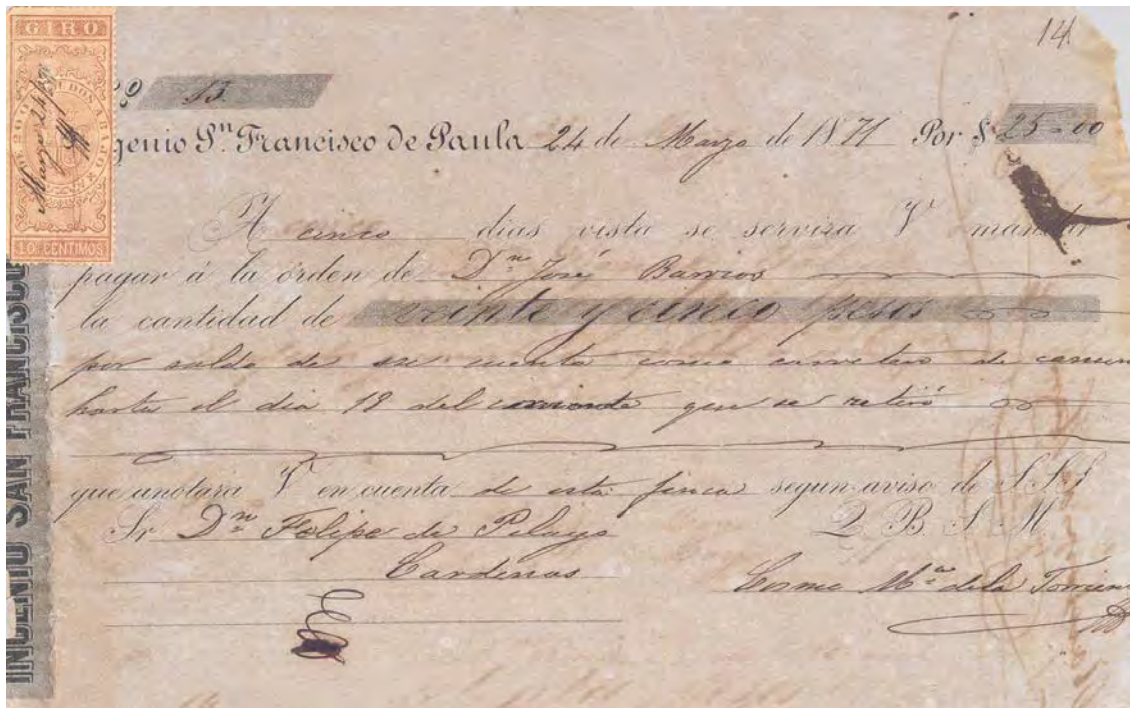 14
GIRO
10 CENTIMOS
Marzo 24/71
13.
genio Sn. Francisco de Paula 24 de Marzo de 1871 Por $ 25=00
A cinco dias vista se servira V mandar
pagar á la órden de Dn José Barrios
la cantidad de veinte y cinco pesos
por saldo de su cuenta como carretero de
hasta el dia 18 del corriente que se retiró
que anotara V en cuenta de esta finca segun aviso de S.S.S
Q. B. S. M
Sr Dn Felipe de Pelayo
Cardenas
Cosme Ma de la Torrien
INGENIO SAN FRANCISCO